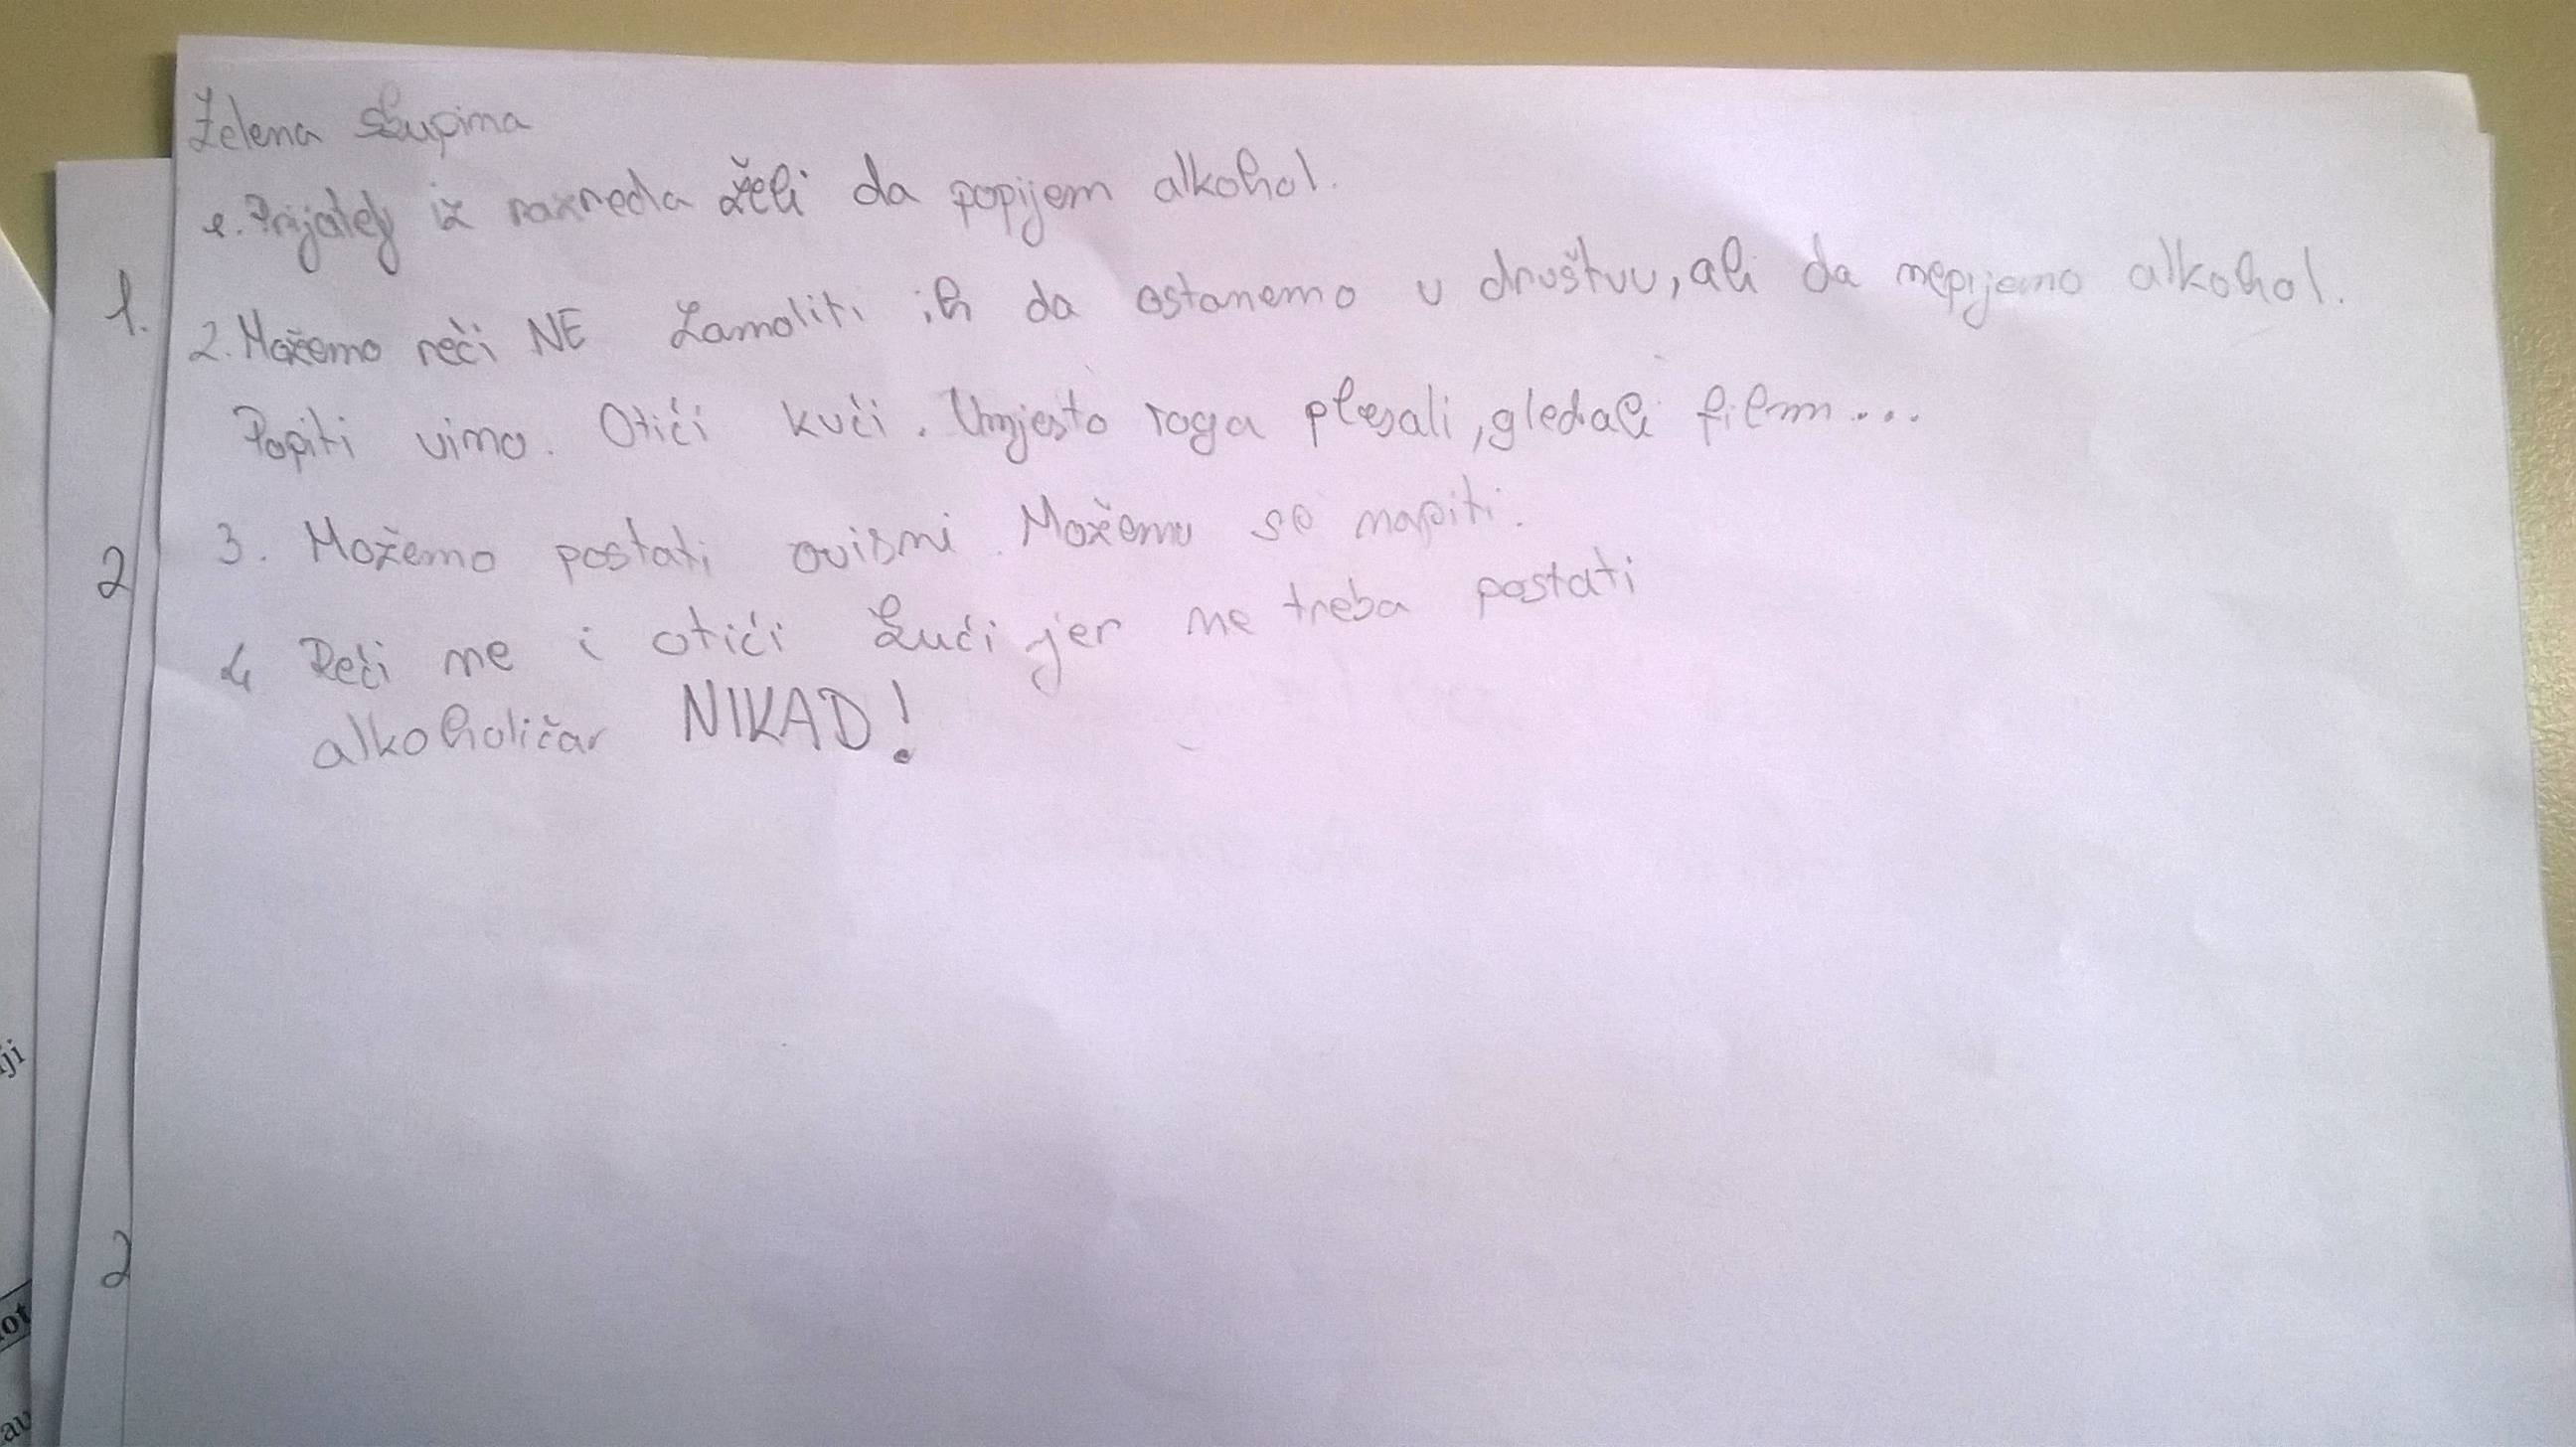 Zelena skupina
1. Prijatelj iz razreda želi da popijem alkohol.
2. Možemo reći NE Zamoliti ih da ostanemo u društvu, ali da nepijemo alkohol.
Popiti vino. Otići kući. Umjesto toga plesali, gledali film...
3. Možemo postati ovisni. Možemo se napiti.
4 Reći ne i otići kući jer ne treba postati
alkoholičar NIKAD!
1.
2
2
ji
ot
au